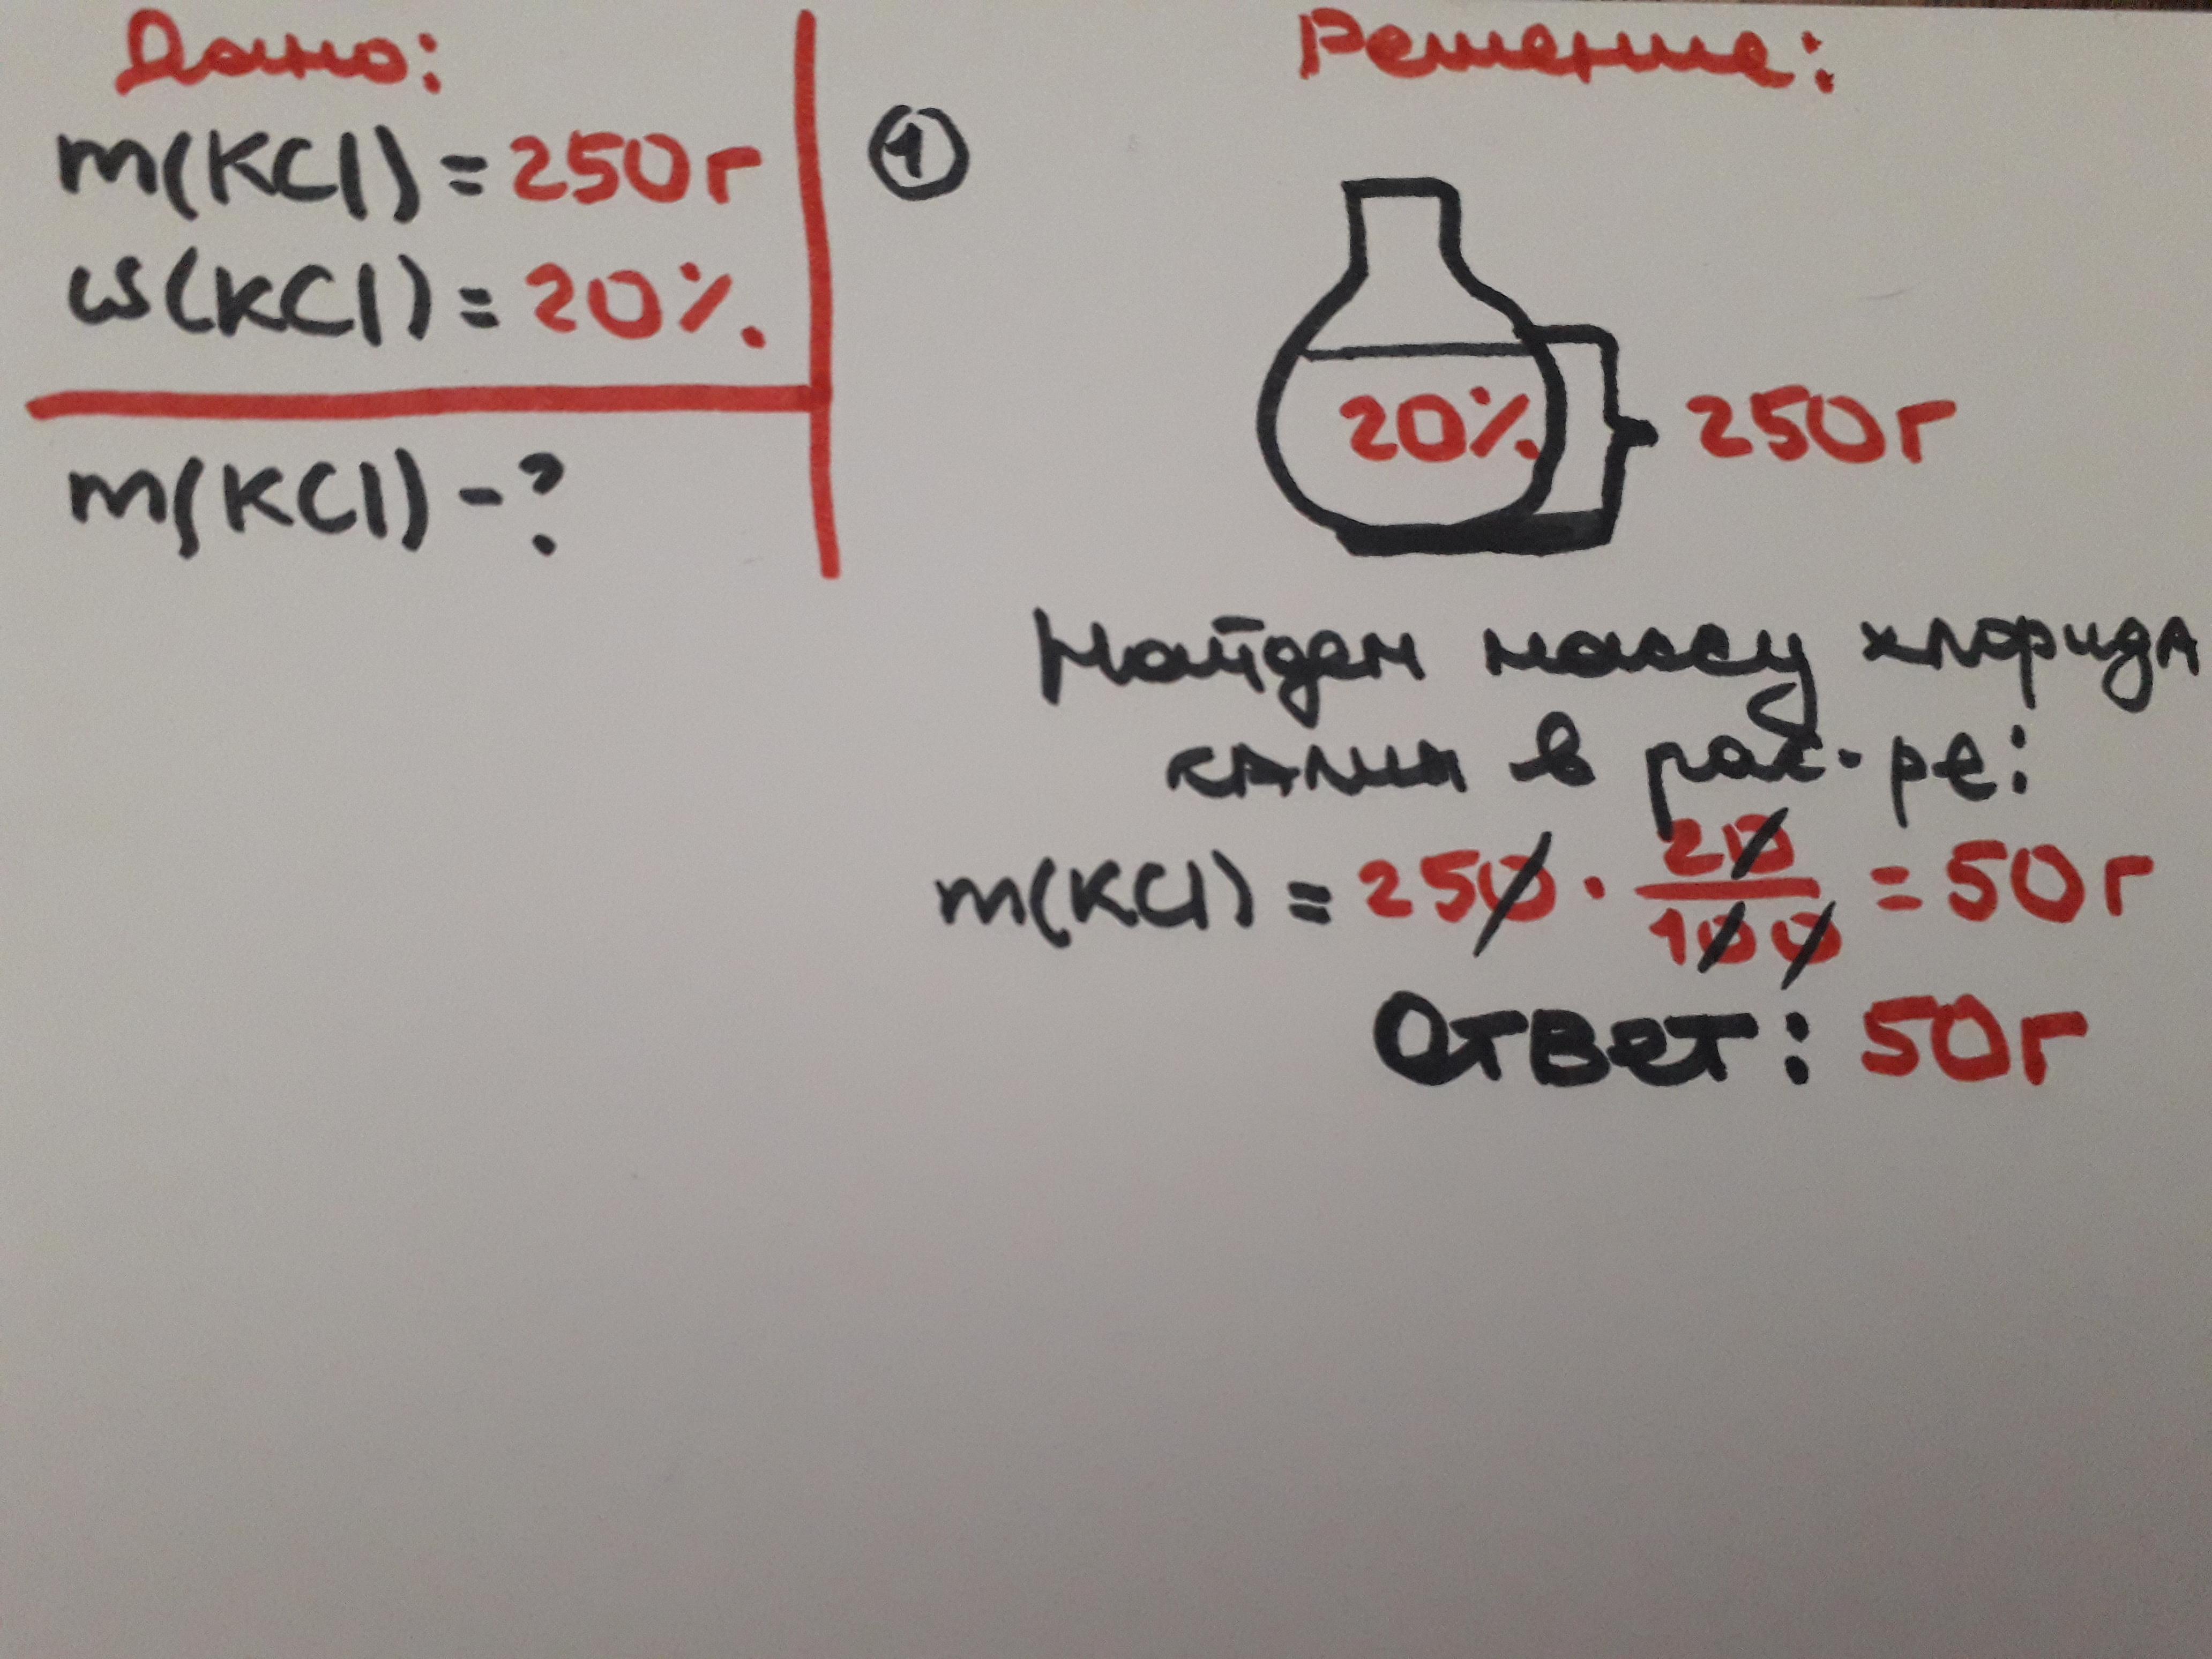 Дано:
m(KCl) = 250г
ω(KCl) = 20%.
m(KCl) - ?
Решение:
1
20%
250г
Найдем массу хлорида
калия в рас-ре:
m(KCl) = 250 · 20/100 = 50г
Ответ: 50г